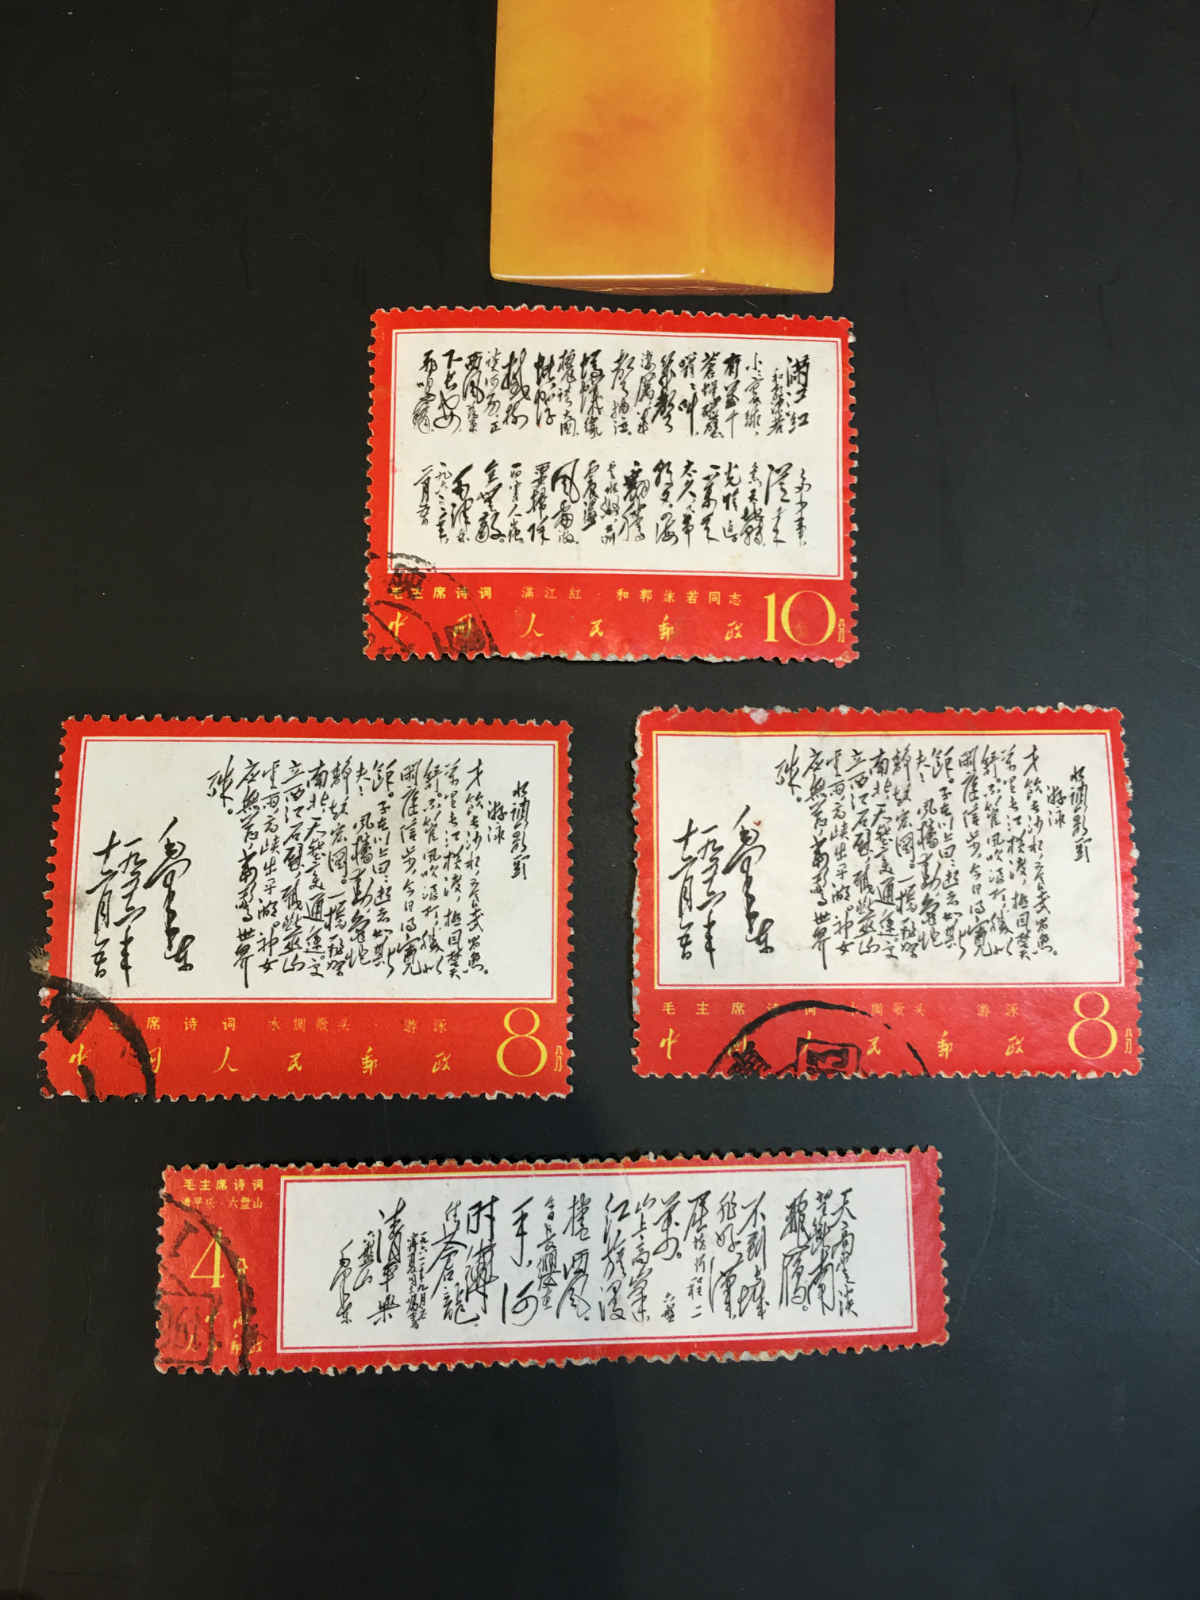 满江红
和郭沫若
小小寰球，
有几个
苍蝇碰壁。
嗡嗡叫，
几声
凄厉，几
声抽泣。
蚂蚁缘
槐夸大国，
蚍蜉
撼树
谈何易。正
西风落叶
下长安，
飞鸣镝。
多少事，
从来
急。天地转，
光阴迫。
一万年
太久，只争
朝夕。四海
翻腾
云水怒，五洲
震荡
风雷激。
要扫除
一切害人虫
全无敌。
毛泽东
一九六三年
一月九日
毛主席诗词 满江红 和郭沫若同志
中国人民邮政 10分
水调歌头
游泳
才饮长沙水，又食武昌鱼。
万里长江横渡，极目楚天
舒。不管风吹浪打，胜似
闲庭信步，今日得宽
馀。子在川上曰：逝者如斯
夫！风樯动，龟蛇
静，起宏图。一桥飞架
南北，天堑变通途。更
立西江石壁，截断巫山
云雨，高峡出平湖。神女
应无恙，当惊世界
殊。
毛泽东
一九五六年
十二月五日
主席诗词 水调歌头 游泳
中国人民邮政 8分
水调歌头
游泳
才饮长沙水，又食武昌鱼。
万里长江横渡，极目楚天
舒。不管风吹浪打，胜似
闲庭信步，今日得宽
馀。子在川上曰：逝者如斯
夫！风樯动，龟蛇
静，起宏图。一桥飞架
南北，天堑变通途。更
立西江石壁，截断巫山
云雨，高峡出平湖。神女
应无恙，当惊世界
殊。
毛泽东
一九五六年
十二月五日
毛主席诗词 水调歌头 游泳
中国人民邮政 8分
毛主席诗词
清平乐·六盘山
4分
中国
人民邮政
天高云淡
望断南
飞雁。
不到长城
非好汉，
屈指行程二
万。
六盘
山上高峰
红旗漫
卷西风。
今日长缨在
手，何
时缚
住苍龙？
清平乐
六盘山
毛泽东